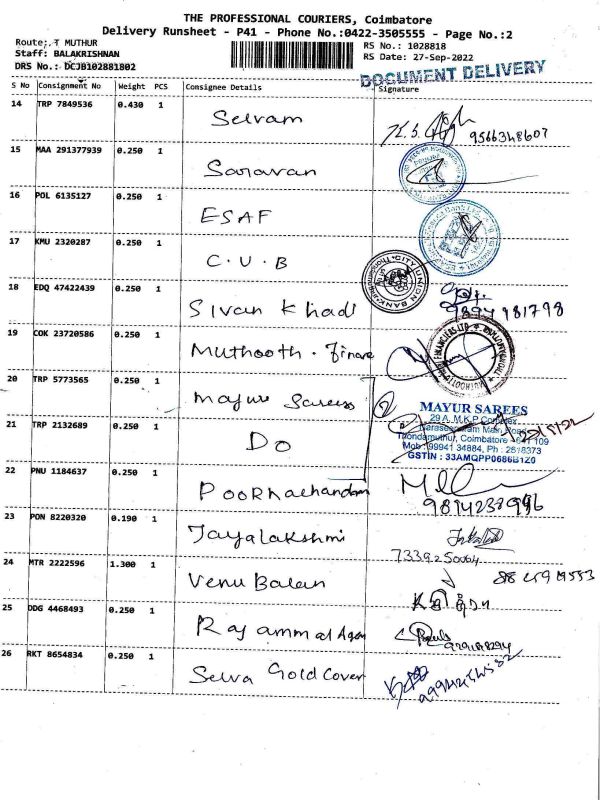 THE PROFESSIONAL COURIERS, Coimbatore
Delivery Runsheet - P41 - Phone No.:0422-3505555 - Page No.:2
Route: T MUTHUR
RS No.: 1028818
Staff: BALAKRISHNAN
RS Date: 27-Sep-2022
DRS No.: DCJB102881802
DOCUMENT DELIVERY
S No Consignment No Weight PCS Consignee Details Signature
14 TRP 7849536 0.430 1 Selvam 9566348607
15 MAA 291377939 0.250 1 Saravan
16 POL 6135127 0.250 1 ESAF
17 KMU 2320287 0.250 1 C.U.B
CITY UNION BANK
18 EDQ 47422439 0.250 1 Sivan Khadi 9894981798
19 COK 23720586 0.250 1 Muthooth. Finance
20 TRP 5773565 0.250 1 Mayur Sarees
MAYUR SAREES
29 A, M.K.P Complex
Naraseepuram Main Road
21 TRP 2132689 0.250 1 Do
Thondamuthur, Coimbatore - 641 109
Mob : 99941 34884, Ph : 2618373
GSTIN : 33AMQPP0686B1Z0
22 PNU 1184637 0.250 1 Poornachandam
23 PON 8220320 0.190 1 Jayalakshmi 7339250064
24 MTR 2222596 1.300 1 Venu Balan
25 DDG 4468493 0.250 1 Rajammal
26 RKT 8654834 0.250 1 Selva Gold Cover